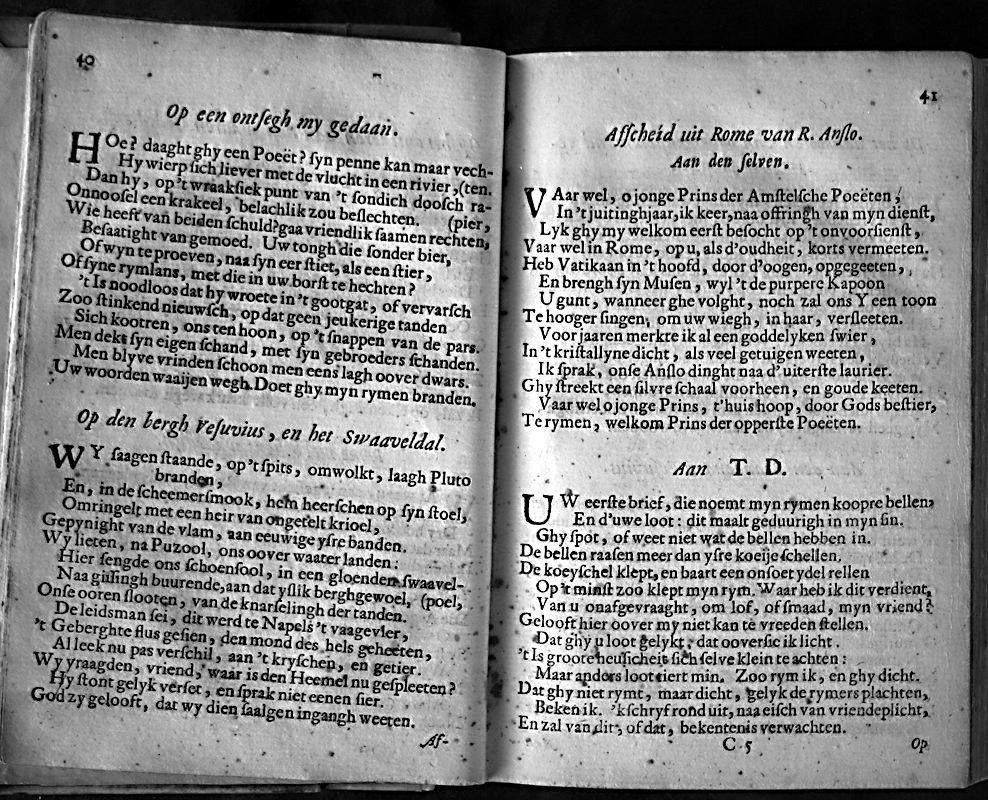 40
Op een ontsegh my gedaan.
HOe? daaght ghy een Poeët? syn penne kan maar vech-
Hy wierp sich liever met de vlucht in een rivier, (ten.
Dan hy, op 't wraaksiek punt van 't sondich doosch ra-
Onnoosel een krakeel, belachlik zou beslechten. (pier,
Wie heeft van beiden schuld? gaa vriendlik saamen rechten,
Besaatight van gemoed. Uw tongh die sonder bier,
Of wyn te proeven, naa syn eer stiet, als een stier,
Of syne rymlans, met die in uw borst te hechten?
't Is noodloos dat hy wroete in 't gootgat, of vervarsch
Zoo stinkend nieuwsch, op dat geen jeukerige tanden
Sich kootren, ons ten hoon, op 't snappen van de pars.
Men deks syn eigen schand, met syn gebroeders schanden.
Men blyve vrinden schoon men eens lagh oover dwars.
Uw woorden waaijen wegh. Doet ghy myn rymen branden.
Op den bergh Vesuvius, en het Swaaveldal.
WY saagen staande, op 't spits, omwolkt, laagh Pluto
branden,
En, in de scheemersmook, hem heerschen op syn stoel,
Omringelt met een heir van ongetelt krioel,
Gepynight van de vlam, aan eeuwige ysre banden.
Wy lieten, na Puzool, ons oover waater landen:
Hier sengde ons schoensool, in een gloenden swaavel-
Naa giising buurende, aan dat yslik berghgewoel, (poel,
Onse ooren slooten, van de knarselingh der tanden.
De leidsman sei, dit werd te Napels 't vaagevier,
't Geberghte flus gesien, den mond des hels geheeten,
Al leek nu pas verschil, aan 't kryschen, en getier.
Wy vraagden, vriend, waar is den Heemel nu gespleeten?
Hy stont gelyk verset, en sprak niet eenen sier.
God zy gelooft, dat wy dien saalgen ingangh weeten.
Af-
41
Afscheid uit Rome van R. Anslo.
Aan den selven.
VAar wel, o jonge Prins der Amstelsche Poeëten,
In 't juitinghjaar, ik keer, naa offringh van myn dienst,
Lyk ghy my welkom eerst besocht op 't onvoorsienst,
Vaar wel in Rome, op u, als d'oudheit, korts vermeeten.
Heb Vatikaan in 't hoofd, door d'oogen, opgegeeten,
En brengh syn Musen, wyl 't de purpere Kapoon
U gunt, wanneer ghe volght, noch zal ons Y een toon
Te hooger singen, om uw wiegh, in haar, versleeten.
Voor jaaren merkte ik al een goddelyken swier,
In 't kristallyne dicht, als veel getuigen weeten,
Ik sprak, onse Anslo dinght naa d'uiterste laurier.
Ghy streekt een silvre schaal voorheen, en goude keeten.
Vaar wel o jonge Prins, t'huis hoop, door Gods bestier,
Te rymen, welkom Prins der opperste Poeëten.
Aan T. D.
UW eerste brief, die noemt myn rymen koopre bellen,
En d'uwe loot: dit maalt geduurigh in myn sin.
Ghy spot, of weet niet wat de bellen hebben in.
De bellen raasen meer dan ysre koeije schellen.
De koeyschel klept, en baart een onsoet ydel rellen
Op 't minst zoo klept myn rym. Waar heb ik dit verdient,
Van u onafgevraaght, om lof, of smaad, myn vriend?
Gelooft hier oover my niet kan te vreeden stellen.
Dat ghy u loot gelykt, dat ooversie ik licht.
't Is groote heusicheit sich selve klein te achten:
Maar anders loot siert min. Zoo rym ik, en ghy dicht.
Dat ghy niet rymt, maar dicht, gelyk de rymers plachten,
Beken ik. 'k schryf rond uit, naa eisch van vriendeplicht,
En zal van dit, of dat, bekentenis verwachten.
C 5
Op